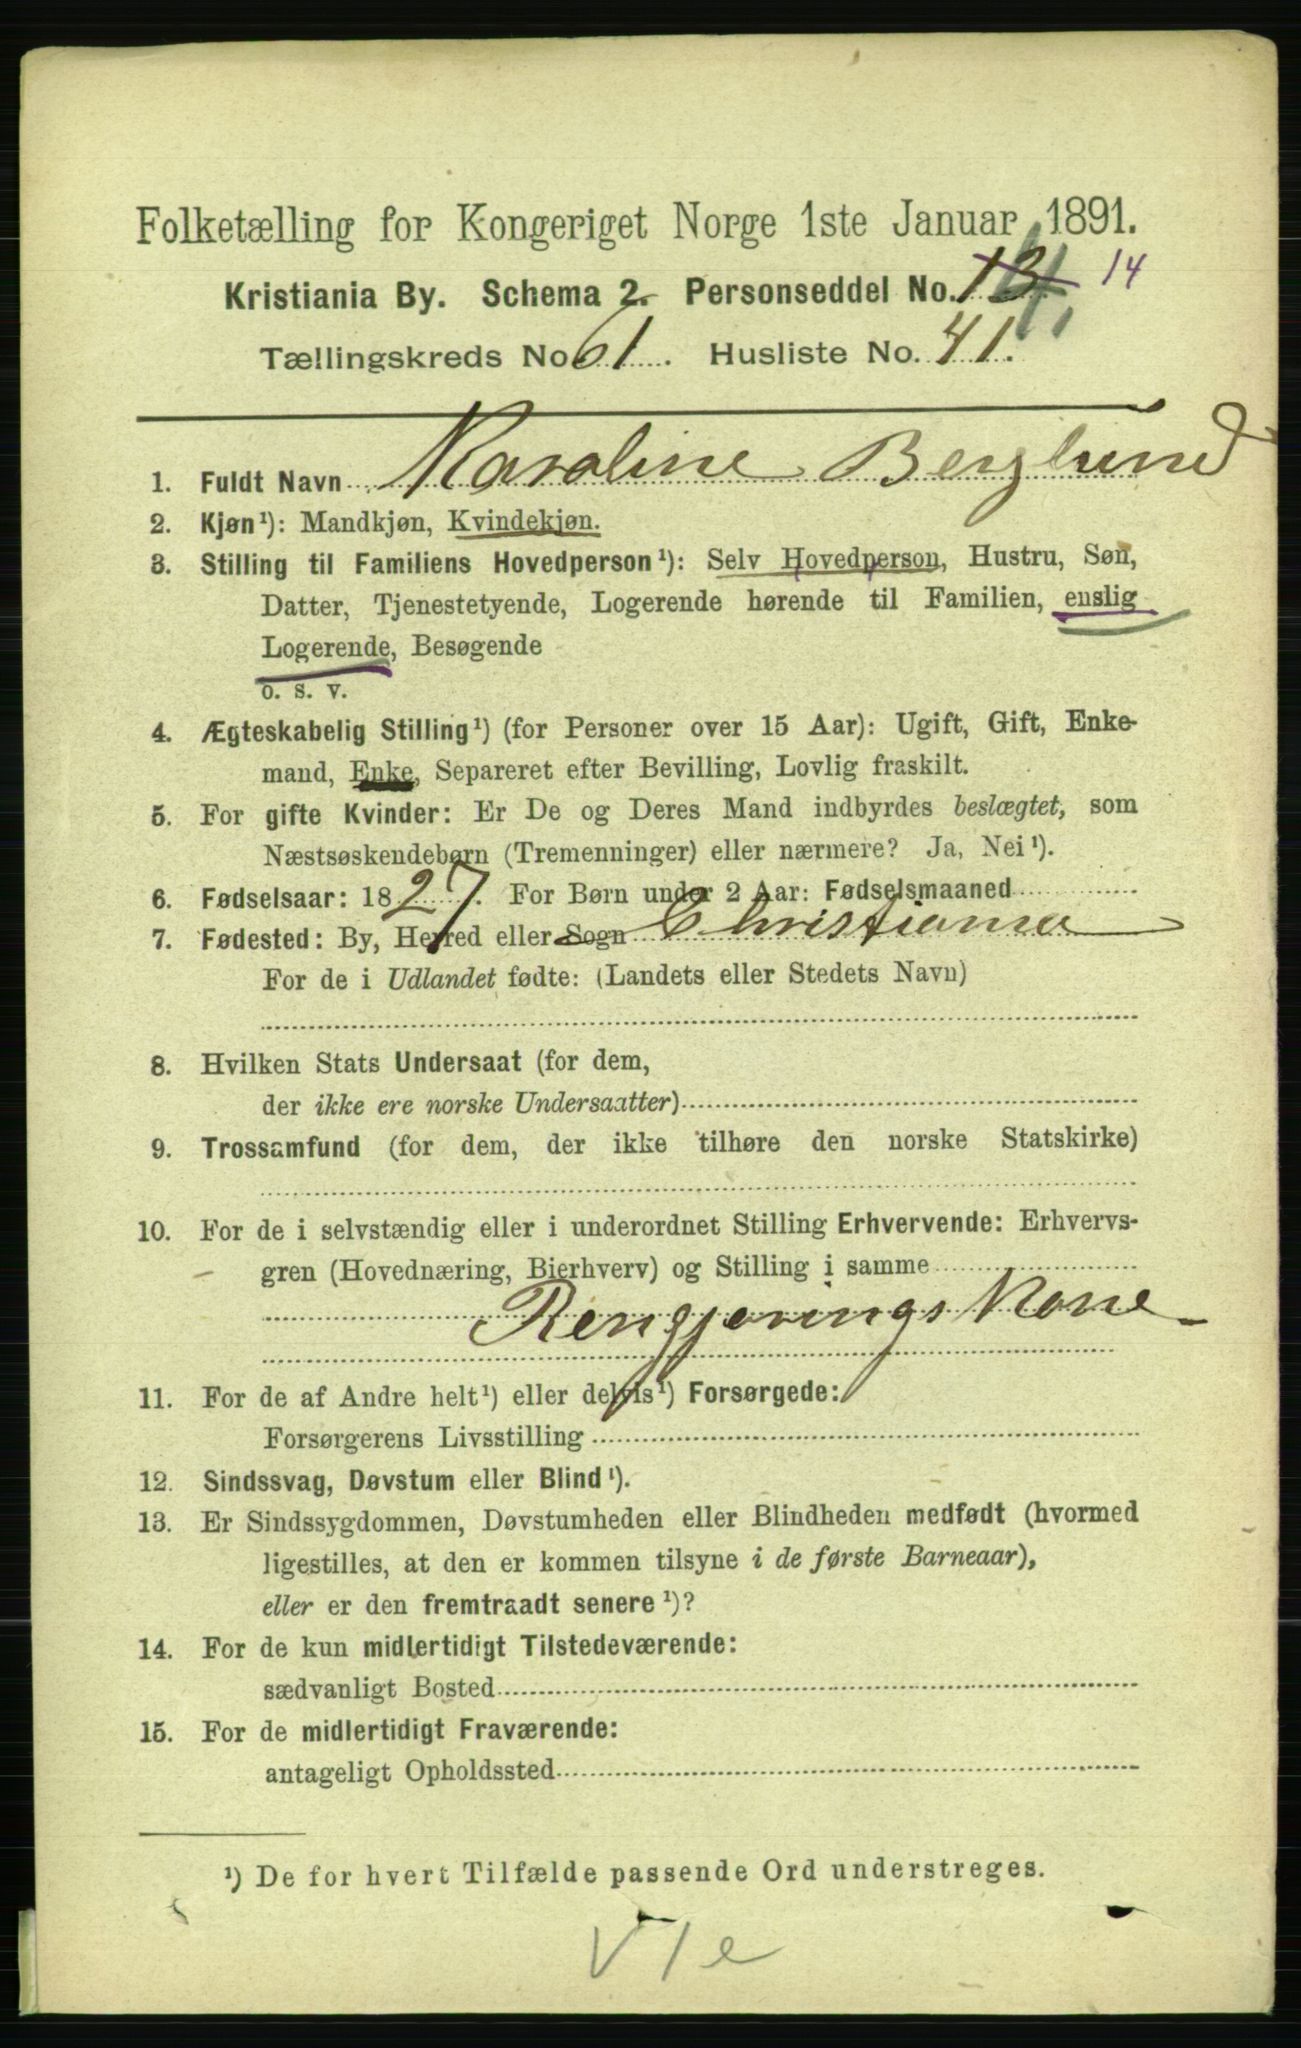 Folketælling for Kongeriget Norge 1ste Januar 1891.
Kristiania By. Schema 2. Personseddel No. 13 14
Tællingskreds No. 61. Husliste No. 41.
1. Fuldt Navn Karoline Berglund
2. Kjøn¹): Mandkjøn, Kvindekjøn.
3. Stilling til Familiens Hovedperson¹): Selv Hovedperson, Hustru, Søn,
Datter, Tjenestetyende, Logerende hørende til Familien, enslig
Logerende, Besøgende
o. s. v.
4. Ægteskabelig Stilling¹) (for Personer over 15 Aar): Ugift, Gift, Enke-
mand, Enke, Separeret efter Bevilling, Lovlig fraskilt.
5. For gifte Kvinder: Er De og Deres Mand indbyrdes beslægtet, som
Næstsøskendebørn (Tremenninger) eller nærmere? Ja, Nei¹).
6. Fødselsaar: 1827. For Børn under 2 Aar: Fødselsmaaned
7. Fødested: By, Herred eller Sogn Christiania
For de i Udlandet fødte: (Landets eller Stedets Navn)
8. Hvilken Stats Undersaat (for dem,
der ikke ere norske Undersaatter)
9. Trossamfund (for dem, der ikke tilhøre den norske Statskirke)
10. For de i selvstændig eller i underordnet Stilling Erhvervende: Erhvervs-
gren (Hovednæring, Bierhverv) og Stilling i samme
Rengjøringskone
11. For de af Andre helt¹) eller delvis¹) Forsørgede:
Forsørgerens Livsstilling
12. Sindssvag, Døvstum eller Blind¹).
13. Er Sindssygdommen, Døvstumheden eller Blindheden medfødt (hvormed
ligestilles, at den er kommen tilsyne i de første Barneaar),
eller er den fremtraadt senere¹)?
14. For de kun midlertidigt Tilstedeværende:
sædvanligt Bosted
15. For de midlertidigt Fraværende:
antageligt Opholdssted
¹) De for hvert Tilfælde passende Ord understreges.